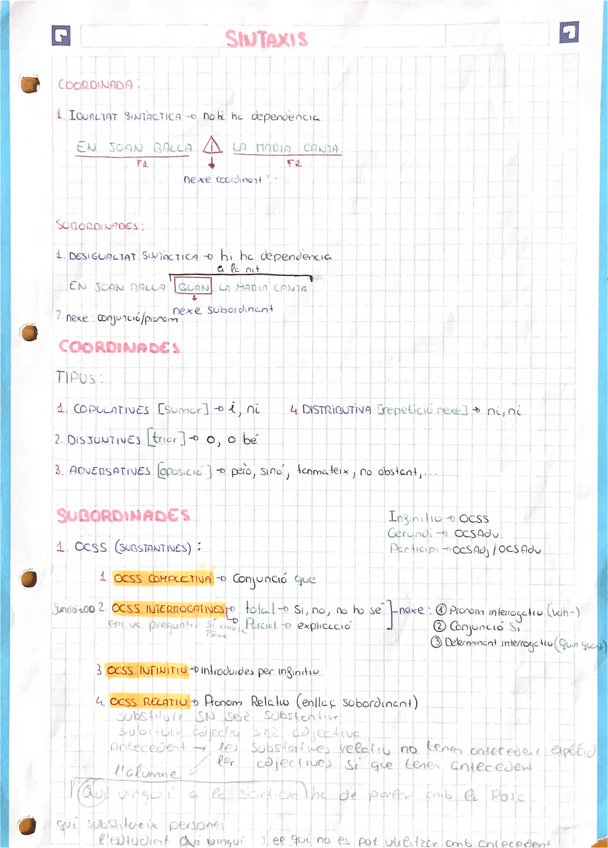 SINTAXIS
COORDINADA:
1. IGUALTAT SINTÀCTICA → no hi ha dependència
EN JOAN BALLA i LA MARIA CANTA
F1 F2
nexe coordinant
SUBORDINADES:
1. DESIGUALTAT SINTÀCTICA → hi ha dependència
a la nit
EN JOAN BALLA QUAN LA MARIA CANTA
nexe subordinant
2. nexe: conjunció/pronom
COORDINADES
TIPUS:
1. COPULATIVES [sumar] → i, ni 4. DISTRIBUTIVA [repetició nexe] → ni, ni
2. DISJUNTIVES [triar] → o, o bé
3. ADVERSATIVES [oposició] → però, sinó, tanmateix, no obstant,...
SUBORDINADES
Infinitiu → OCSS
Gerundi → OCSAdv
Participi → OCSAdj / OCSAdv
1. OCSS (SUBSTANTIVES):
1. OCSS COMPLETIVA → Conjunció que
2. OCSS INTERROGATIVES → total → Si, no, no ho sé nexe: ① Pronom interrogatiu (wh-)
em va preguntar si → Parcial → explicació ② Conjunció Si
③ Determinant interrogatiu
3. OCSS INFINITIU → Introduïdes per infinitiu
4. OCSS RELATIU → Pronom Relatiu (enllaç subordinant)
substituir SN serà substantiva
substituir adjectiu serà adjectiva
Antecedent → les substantives relatiu no tenen antecedent explícit
les adjectives si que tenen antecedent
l'alumne
Qui vingui a la sortida ha de parlar amb la
qui substitueix persones
l'estudiant qui vingui qui no es pot utilitzar amb antecedent